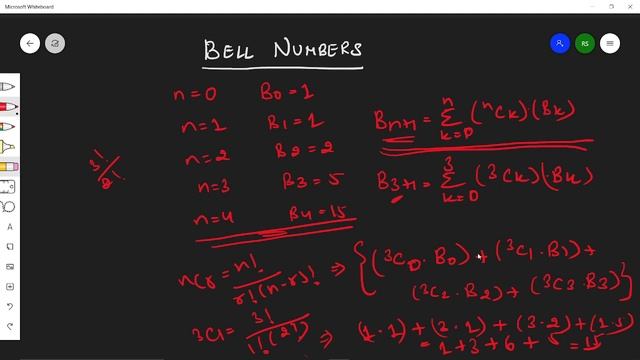 Microsoft Whiteboard
RS
BELL NUMBERS
n=0 B0=1
n=1 B1=1
n=2 B2=2
n=3 B3=5
n=4 B4=15
Bn+1 = Σ n k=0 (nCk)(Bk)
B3+1 = Σ 3 k=0 (3Ck)(Bk)
3!/2!
nCr = n!/r!(n-r)! ⇒ {(3C0·B0) + (3C1·B1) +
(3C2·B2) + (3C3·B3)}
3C1 = 3!/1!(2!) ⇒ (1·1) + (3·1) + (3·2) + (1·5)
= 1+3+6+5 = 15